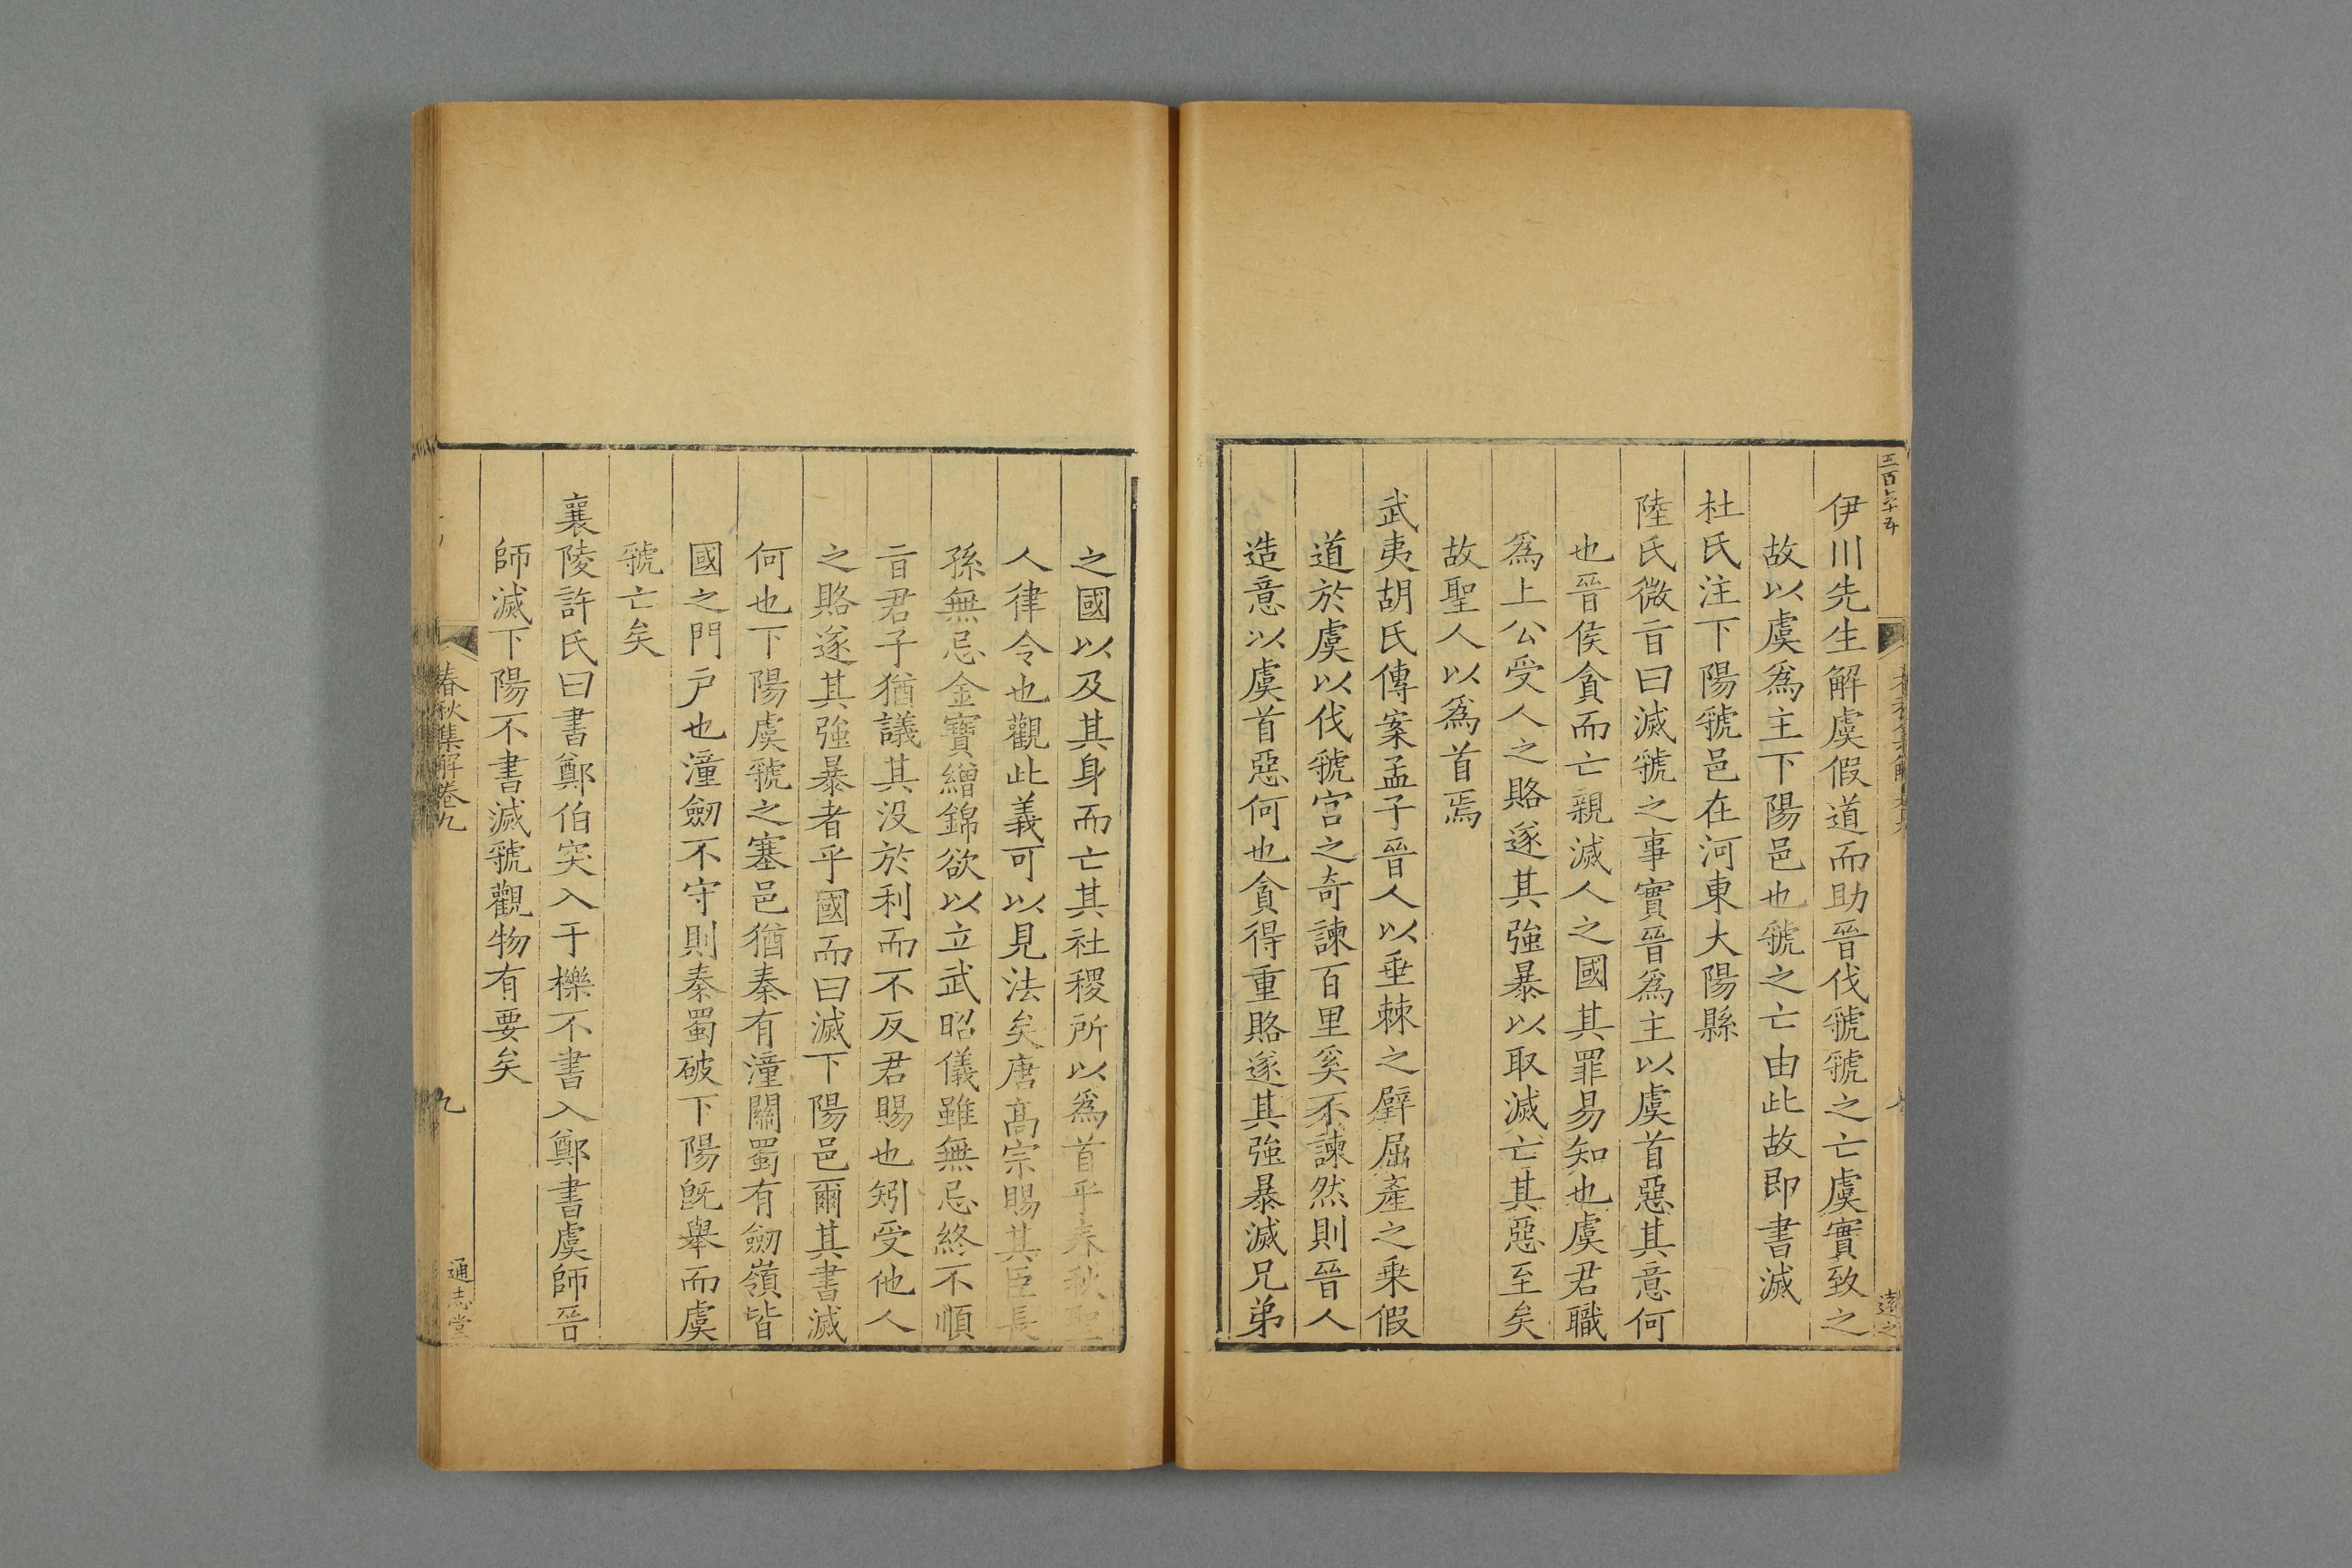 伊川先生解虞假道而助晉伐虢虢之亡虞實致之
故以虞爲主下陽邑也虢之亡由此故即書滅
杜氏注下陽虢邑在河東大陽縣
陸氏微旨曰滅虢之事實晉爲主以虞首惡其意何
也晉侯貪而亡親滅人之國其罪易知也虞君職
爲上公受人之賂遂其強暴以取滅亡其惡至矣
故聖人以爲首焉
武夷胡氏傳案孟子晉人以垂棘之璧屈產之乗假
道於虞以伐虢宮之奇諫百里奚不諫然則晉人
造意以虞首惡何也貪得重賂遂其強暴滅兄弟
之國以及其身而亡其社稷所以爲首乎春秋聖
人律令也觀此義可以見法矣唐高宗賜其臣長
孫無忌金寶繒錦欲以立武昭儀雖無忌終不順
旨君子猶議其没於利而不反君賜也矧受他人
之賂遂其強暴者乎國而曰滅下陽邑爾其書滅
何也下陽虞虢之塞邑猶秦有潼關蜀有劒嶺皆
國之門戶也潼劒不守則秦蜀破下陽旣舉而虞
虢亡矣
襄陵許氏曰書鄭伯突入于櫟不書入鄭書虞師晉
師滅下陽不書滅虢觀物有要矣
春秋集解卷九
九
通志堂